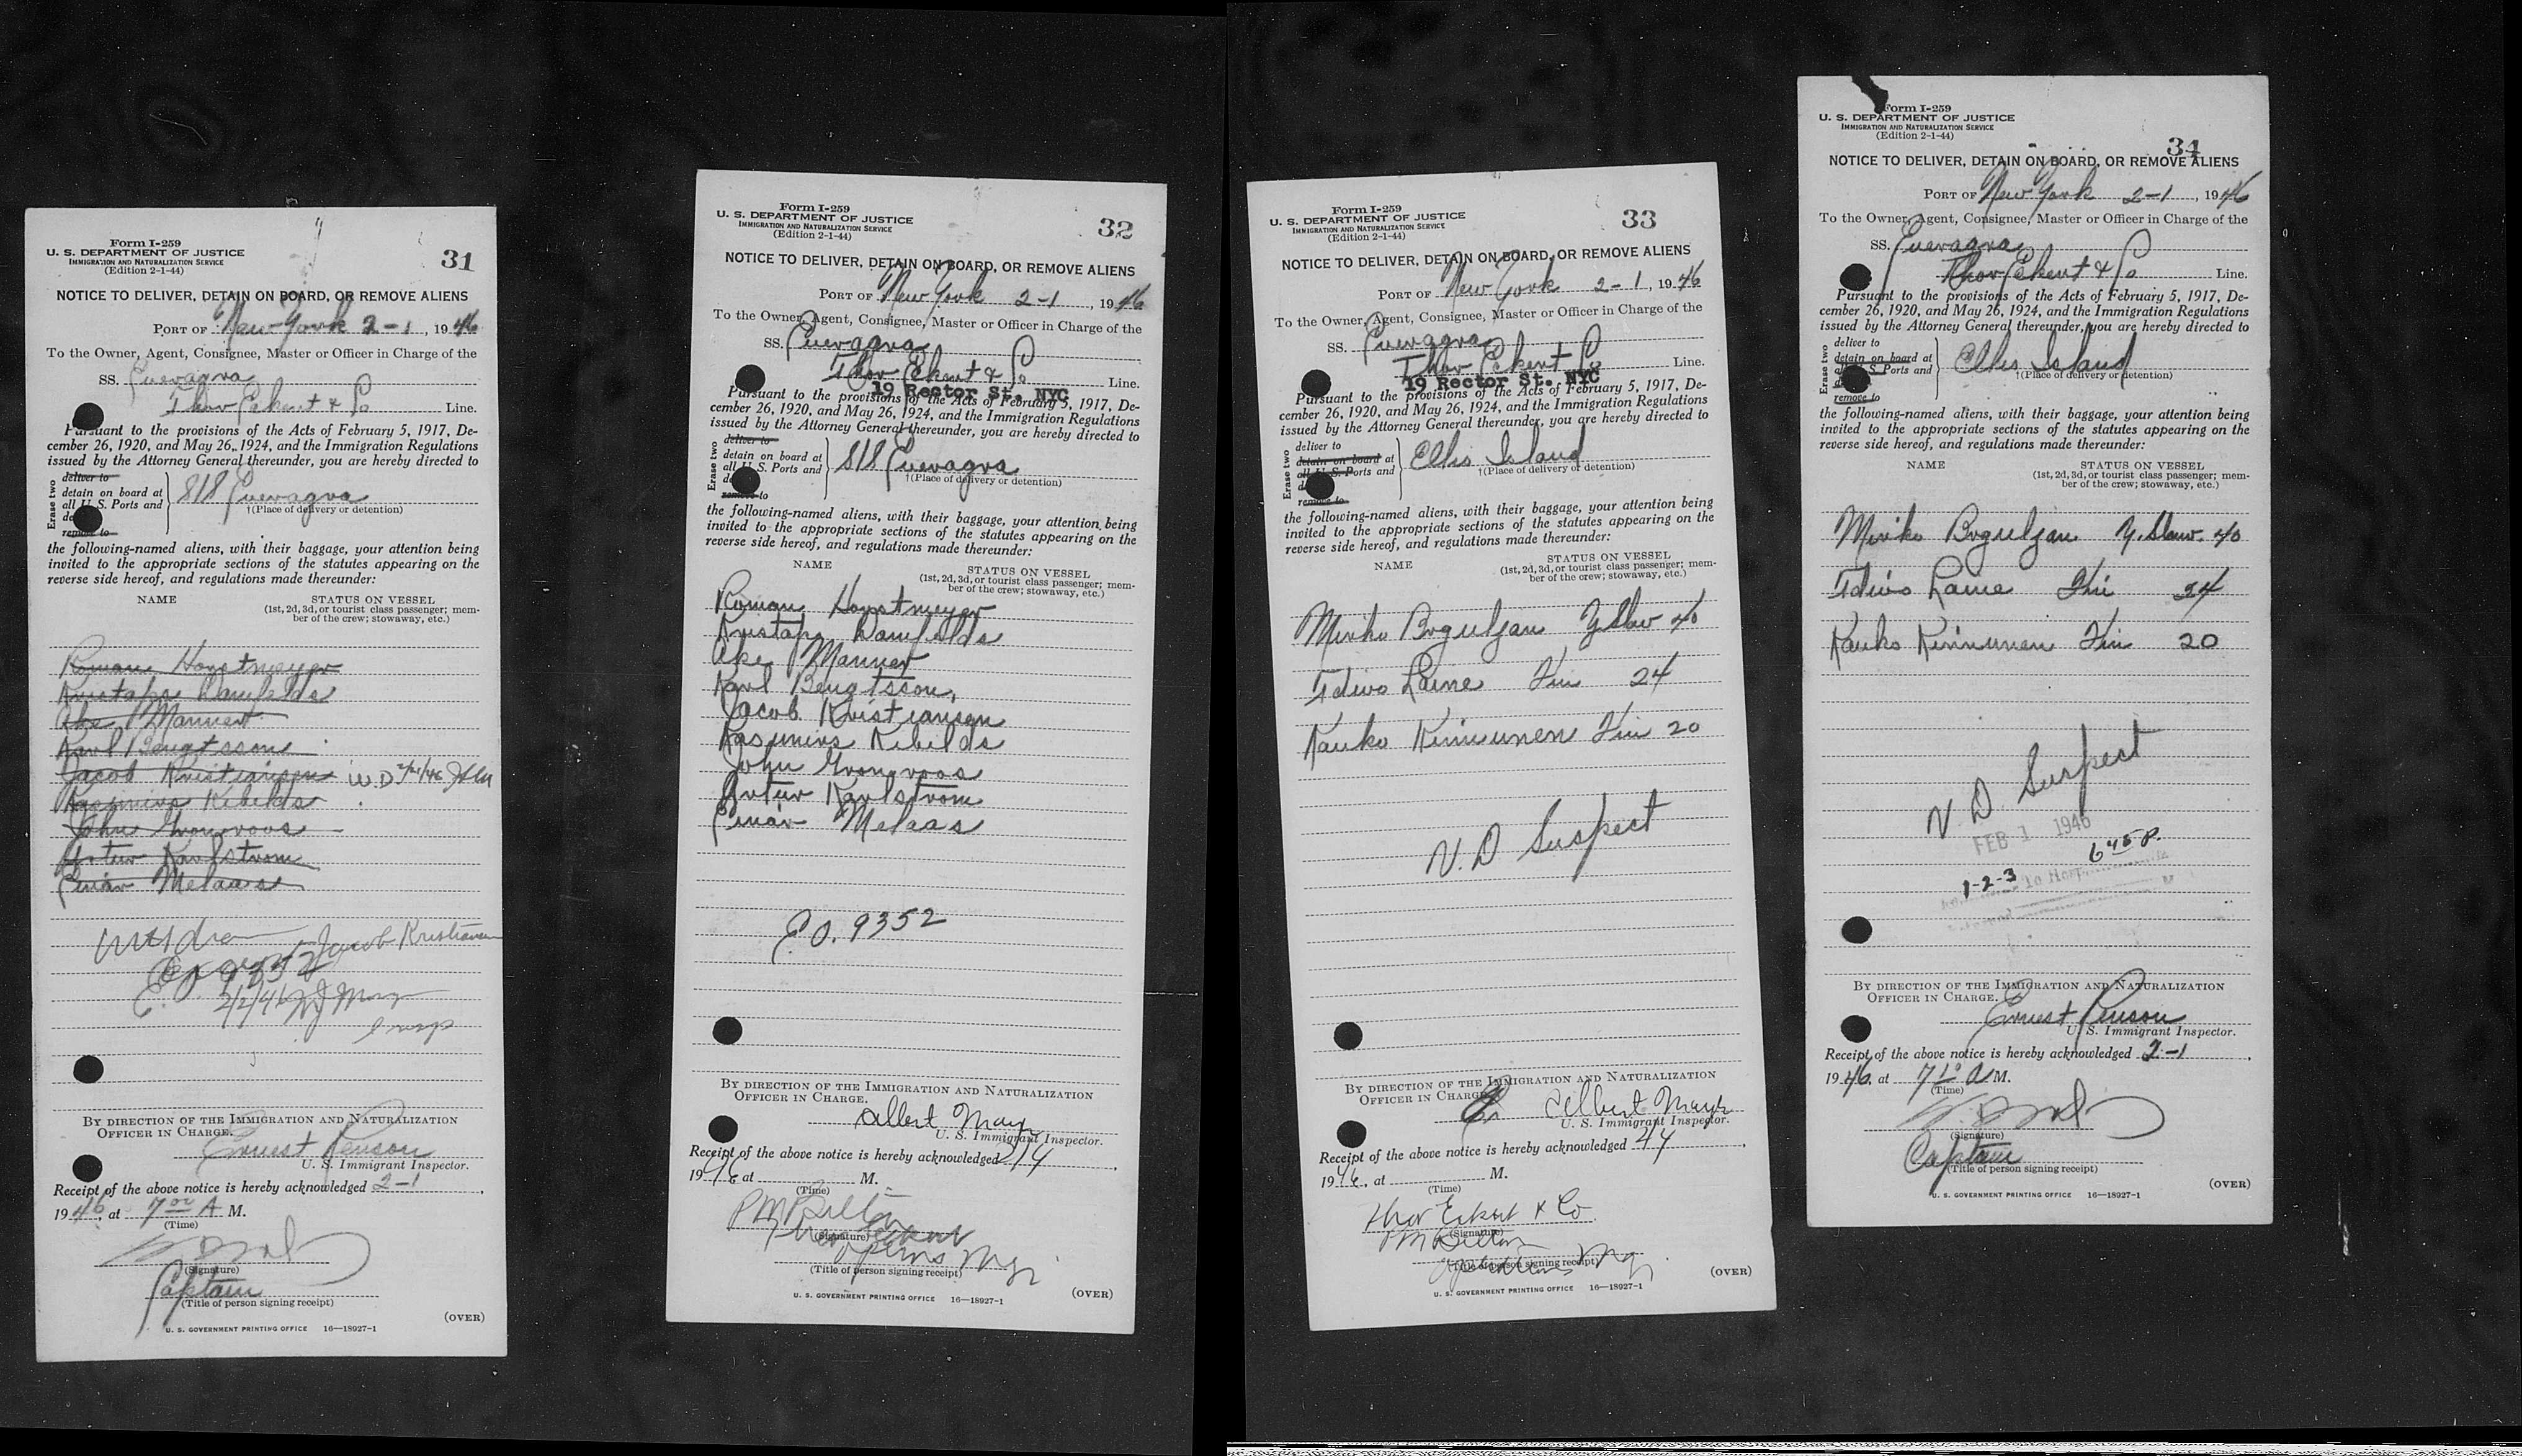 Form I-259
U. S. DEPARTMENT OF JUSTICE
IMMIGRATION AND NATURALIZATION SERVICE
(Edition 2-1-44)
31
NOTICE TO DELIVER, DETAIN ON BOARD, OR REMOVE ALIENS
PORT OF New York 2-1, 1946
To the Owner, Agent, Consignee, Master or Officer in Charge of the
SS. Cuevagva
Thor Eckert & Co Line.
Pursuant to the provisions of the Acts of February 5, 1917, De-
cember 26, 1920, and May 26, 1924, and the Immigration Regulations
issued by the Attorney General thereunder, you are hereby directed to
Erase two
deliver to
detain on board at
all U. S. Ports and
remove to
S/S
†(Place of delivery or detention)
the following-named aliens, with their baggage, your attention being
invited to the appropriate sections of the statutes appearing on the
reverse side hereof, and regulations made thereunder:
NAME STATUS ON VESSEL
(1st, 2d, 3d, or tourist class passenger; mem-
ber of the crew; stowaway, etc.)
Roman Horstmeyer
Kristaps Damfelds
Ake Manner
Karl Bengtsson
Jacob Kristiansen W.D
Kasimirs Kibilds
John Gronroos
Artur Karlstrom
Einar Melaas
Jacob Kristiansen
E.O. 9352
2/2/46
Insp
BY DIRECTION OF THE IMMIGRATION AND NATURALIZATION
OFFICER IN CHARGE.
Ernest Renson
U. S. Immigrant Inspector.
Receipt of the above notice is hereby acknowledged 2-1
1946, at 7 00 A M.
(Time)
(Signature)
Captain
(Title of person signing receipt)
(OVER)
U. S. GOVERNMENT PRINTING OFFICE 16—18927-1
Form I-259
U. S. DEPARTMENT OF JUSTICE
IMMIGRATION AND NATURALIZATION SERVICE
(Edition 2-1-44)
32
NOTICE TO DELIVER, DETAIN ON BOARD, OR REMOVE ALIENS
PORT OF New York 2-1, 1946
To the Owner, Agent, Consignee, Master or Officer in Charge of the
SS.
Thor Eckert & Co Line.
19 Rector St. NYC
Pursuant to the provisions of the Acts of February 5, 1917, De-
cember 26, 1920, and May 26, 1924, and the Immigration Regulations
issued by the Attorney General thereunder, you are hereby directed to
Erase two
deliver to
detain on board at
all U. S. Ports and
remove to
S/S
†(Place of delivery or detention)
the following-named aliens, with their baggage, your attention being
invited to the appropriate sections of the statutes appearing on the
reverse side hereof, and regulations made thereunder:
NAME STATUS ON VESSEL
(1st, 2d, 3d, or tourist class passenger; mem-
ber of the crew; stowaway, etc.)
Roman Horstmeyer
Kristaps Damfelds
Ake Manner
Karl Bengtsson,
Jacob Kristiansen
Kasimirs Kibilds
John Gronroos
Artur Karlstrom
Einar Melaas
E.O. 9352
BY DIRECTION OF THE IMMIGRATION AND NATURALIZATION
OFFICER IN CHARGE.
Albert Mayr
U. S. Immigrant Inspector.
Receipt of the above notice is hereby acknowledged 2/4
1946 at M.
(Time)
Thor Eckert
(Signature)
Opern's Mgr
(Title of person signing receipt)
(OVER)
U. S. GOVERNMENT PRINTING OFFICE 16—18927-1
Form I-259
U. S. DEPARTMENT OF JUSTICE
IMMIGRATION AND NATURALIZATION SERVICE
(Edition 2-1-44)
33
NOTICE TO DELIVER, DETAIN ON BOARD, OR REMOVE ALIENS
PORT OF New York 2-1, 1946
To the Owner, Agent, Consignee, Master or Officer in Charge of the
SS.
Thor Eckert Co Line.
19 Rector St. NYC
Pursuant to the provisions of the Acts of February 5, 1917, De-
cember 26, 1920, and May 26, 1924, and the Immigration Regulations
issued by the Attorney General thereunder, you are hereby directed to
Erase two
deliver to
detain on board at
all U. S. Ports and
remove to
Ellis Island
†(Place of delivery or detention)
the following-named aliens, with their baggage, your attention being
invited to the appropriate sections of the statutes appearing on the
reverse side hereof, and regulations made thereunder:
NAME STATUS ON VESSEL
(1st, 2d, 3d, or tourist class passenger; mem-
ber of the crew; stowaway, etc.)
Mirko Broguljan Y. Slav 40
Toivo Laine Fin 24
Kauko Kinnunen Fin 20
V. D Suspect
BY DIRECTION OF THE IMMIGRATION AND NATURALIZATION
OFFICER IN CHARGE.
Albert Mayr
U. S. Immigrant Inspector.
Receipt of the above notice is hereby acknowledged
1946, at M.
(Time)
Thor Eckert & Co
(Signature)
Operations Mgr
(Title of person signing receipt)
(OVER)
U. S. GOVERNMENT PRINTING OFFICE 16—18927-1
Form I-259
U. S. DEPARTMENT OF JUSTICE
IMMIGRATION AND NATURALIZATION SERVICE
(Edition 2-1-44)
34
NOTICE TO DELIVER, DETAIN ON BOARD, OR REMOVE ALIENS
PORT OF New York 2-1, 1946
To the Owner, Agent, Consignee, Master or Officer in Charge of the
SS.
Thor Eckert & Co Line.
Pursuant to the provisions of the Acts of February 5, 1917, De-
cember 26, 1920, and May 26, 1924, and the Immigration Regulations
issued by the Attorney General thereunder, you are hereby directed to
Erase two
deliver to
detain on board at
all U. S. Ports and
remove to
Ellis Island
†(Place of delivery or detention)
the following-named aliens, with their baggage, your attention being
invited to the appropriate sections of the statutes appearing on the
reverse side hereof, and regulations made thereunder:
NAME STATUS ON VESSEL
(1st, 2d, 3d, or tourist class passenger; mem-
ber of the crew; stowaway, etc.)
Mirko Broguljan Y. Slav. 40
Toivo Laine Fin 24
Kauko Kinnunen Fin 20
V. D. Suspect
FEB 1 1946
6 45 P.
1-2-3 To Hosp.
BY DIRECTION OF THE IMMIGRATION AND NATURALIZATION
OFFICER IN CHARGE.
Ernest Renson
U. S. Immigrant Inspector.
Receipt of the above notice is hereby acknowledged 2-1
1946. at 7 10 A M.
(Time)
(Signature)
Captain
(Title of person signing receipt)
(OVER)
U. S. GOVERNMENT PRINTING OFFICE 16—18927-1